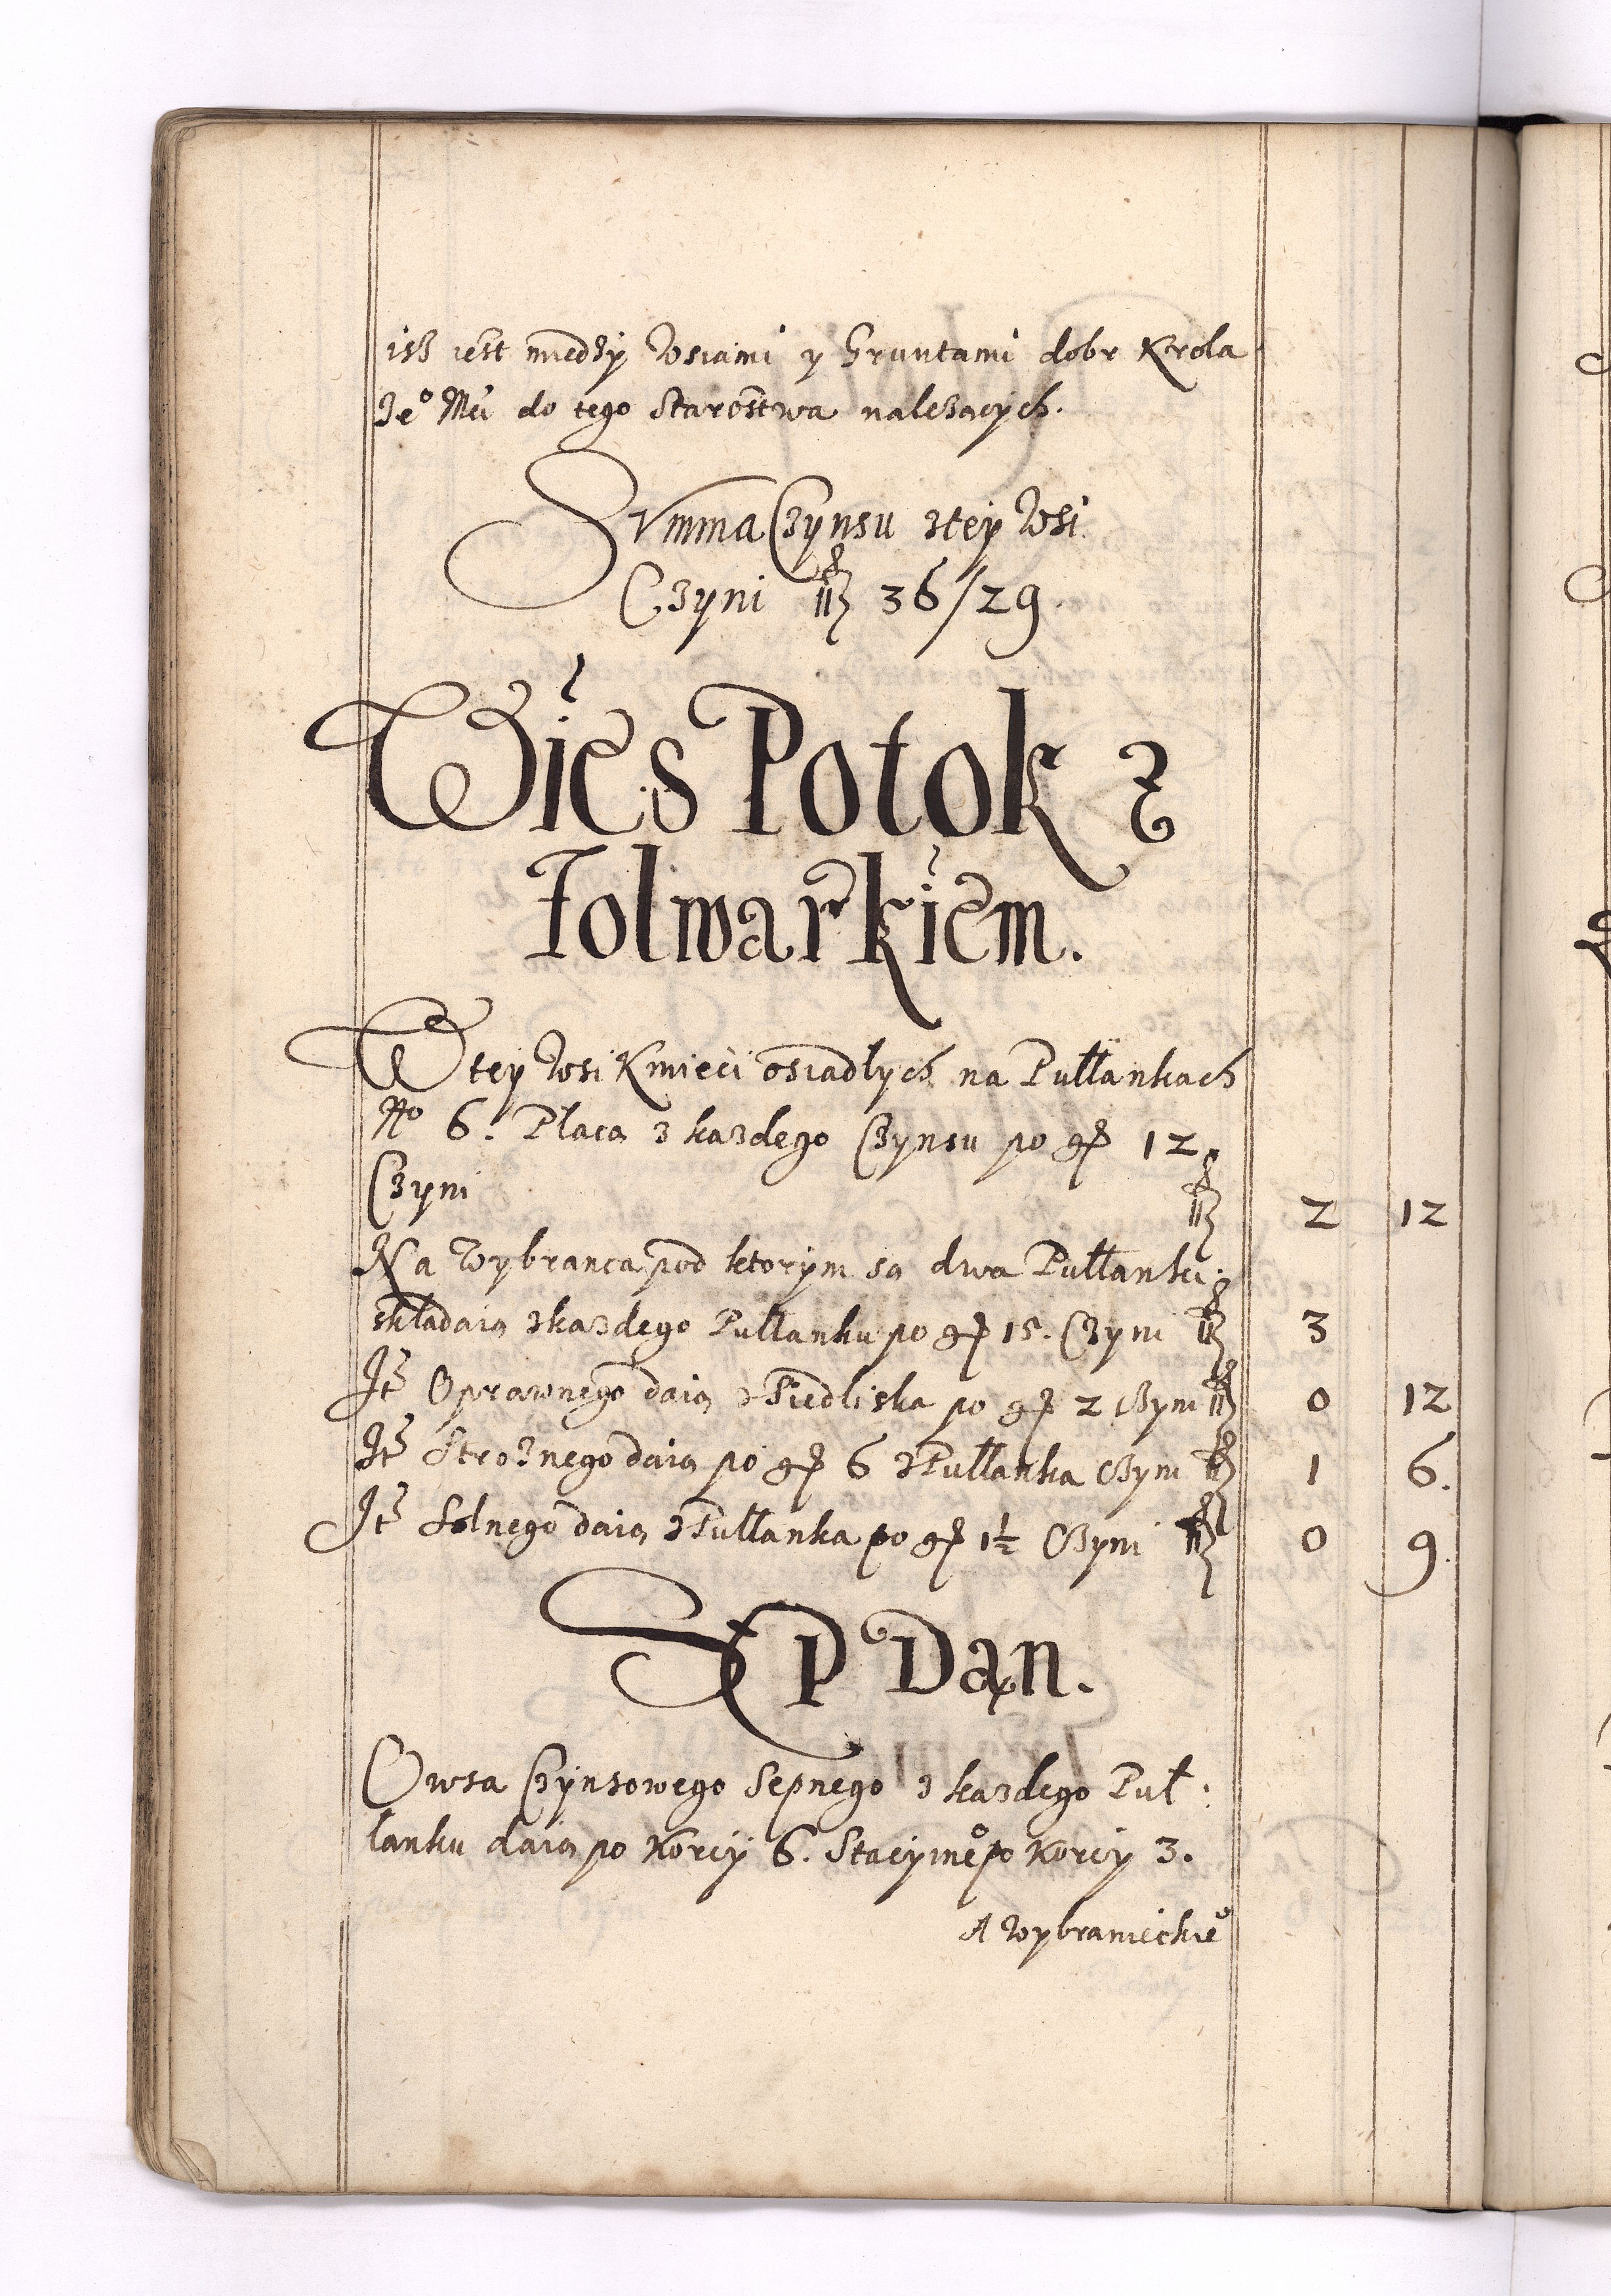 isz iest miedzy wsiami y Gruntami dobr Krola
Jeº Mci do tego Starostwa nalezacych.
Summa Czynsu z tey wsi
Czyni fl 36/29.
Wies Potok z
Folwarkiem.
W tey wsi Kmieci osiadłych na Pułłankach
Nº 6. Płacą z kazdego Czynsu po gr 12.
Czyni fl 2 12
Na Wybranca pod ktorym są dwa Pułłanki
składaią z kazdego Pułłanku po gr 15. Czyni fl 3
It Oprawnego daią z Siedliska po gr 2 Czyni fl 0 12
It Stroznego daią po gr 6 z Pułłanka Czyni fl 1 6.
It Solnego daią z Pułłanka po gr 1½ Czyni fl 0 9.
SęP Dan.
Owsa Czynsowego Sepnego z kazdego Puł:
łanku daią po Korcy 6. Stacyineº po Korcy 3.
A Wybranieckieº